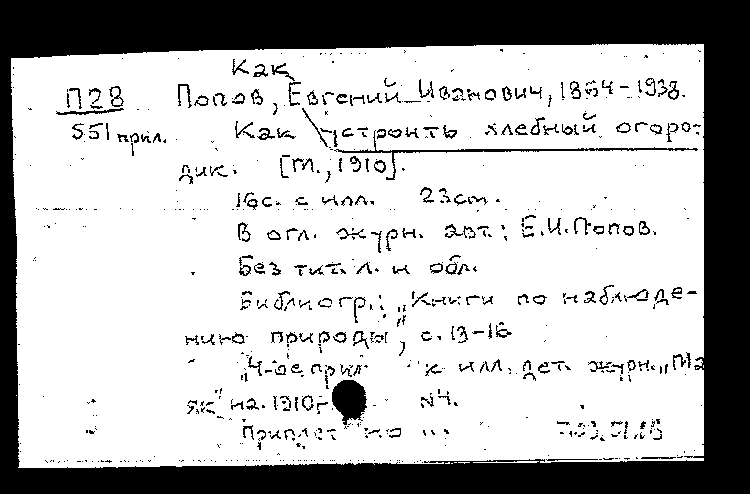 Как
П28 Попов, Евгений Иванович, 1864-1938.
551 прил. Как устроить хлебный огоро-
дик. [М., 1910].
16с. с илл. 23см.
В огл. журн. авт.: Е.И.Попов.
Без тит. л. и обл.
Библиогр.: „Книги по наблюде-
нию природы", с. 13-16
„4-ое прил к илл. дет. журн. „Ма
як" на 1910г N4.
Приплет но